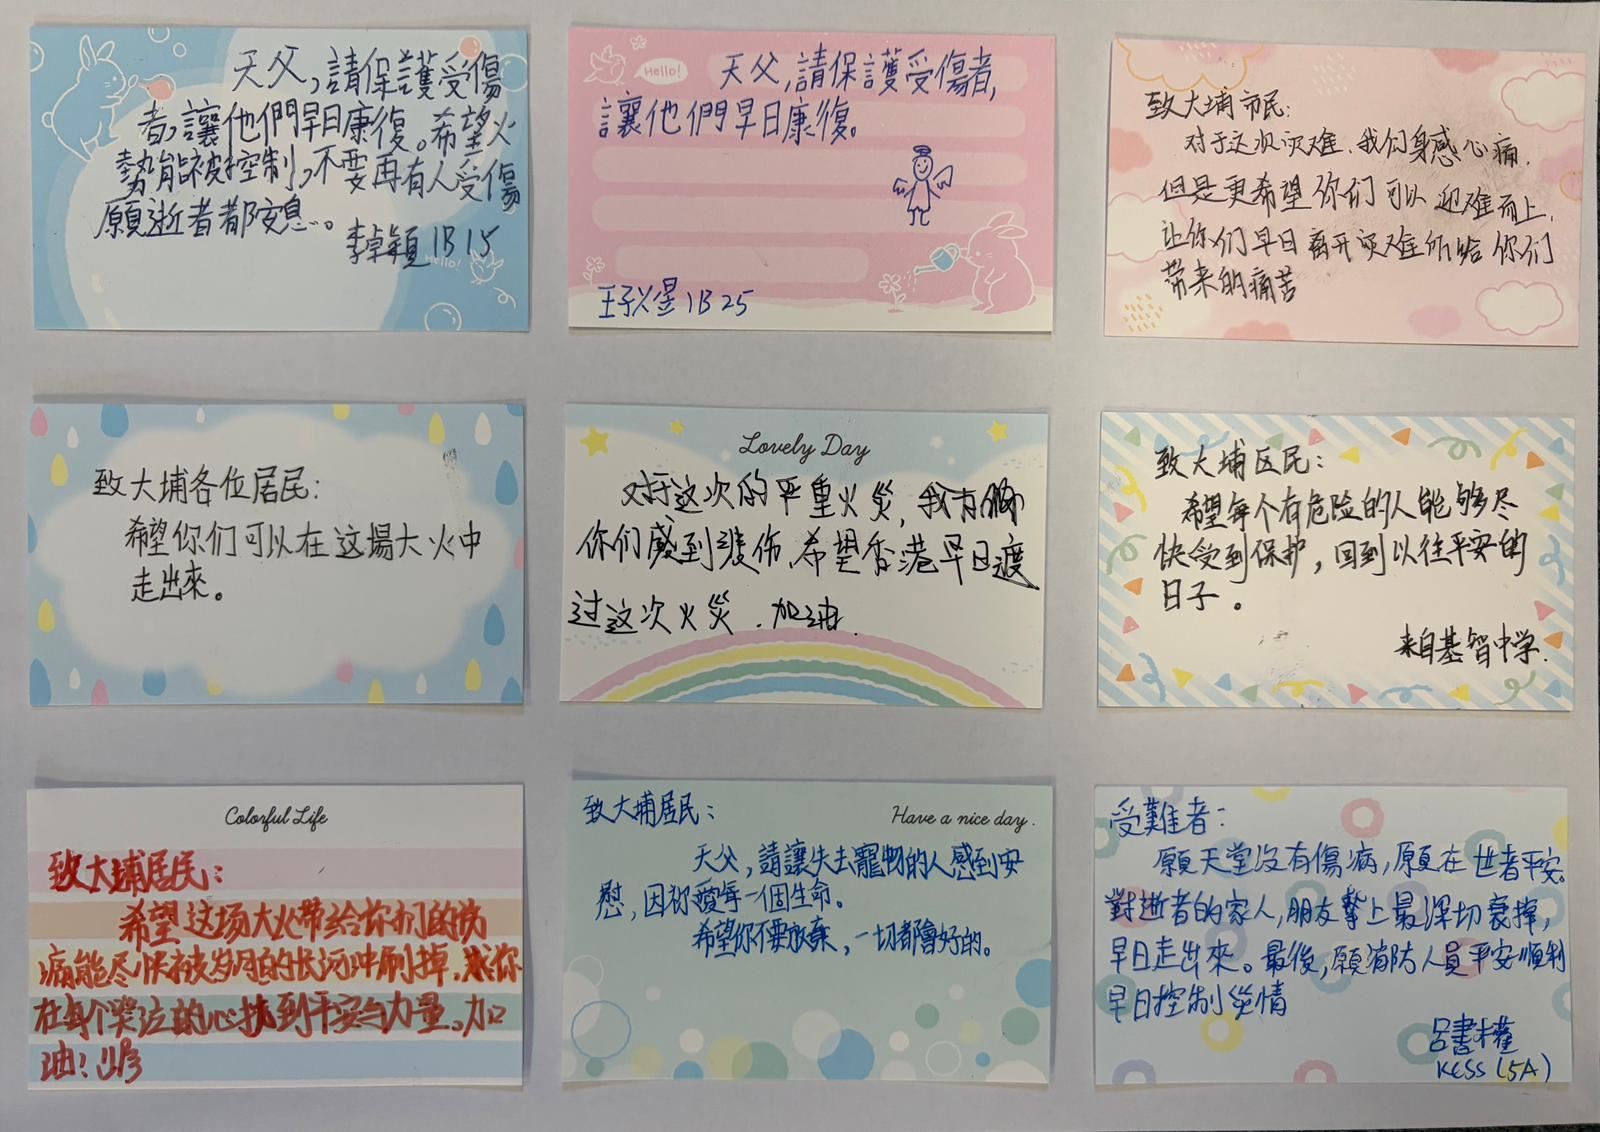 天父,請保護受傷
者,讓他們早日康復。希望火
勢能被控制,不要再有人受傷
願逝者都安息。
李卓穎 1B 15
Hello!
Hello!
天父,請保護受傷者,
讓他們早日康復。
1B 25
致大埔市民:
对于这次灾难、我们身感心痛.
但是更希望你们可以迎难而上.
让你们早日离开灾难所给你们
带来的痛苦
致大埔各位居民:
希望你们可以在这場大火中
走出來。
Lovely Day
对于这次的严重火災,我有
你们感到悲伤,希望香港早日渡
过这次火災.加油.
致大埔区民:
希望每个有危险的人能够尽
快受到保护,回到以往平安的
日子。
来自基智中学.
Colorful Life
致大埔居民:
希望这场大火带给你们的伤
痛能尽快被岁月的长河冲刷掉.
在每个哭泣的心找到平安与力量。加
油! 1B
致大埔居民:
Have a nice day.
天父,請讓失去寵物的人感到安
慰,因你愛每一個生命。
希望你不要放棄,一切都會好的。
受難者:
願天堂沒有傷病,願在世者平安。
對逝者的家人,朋友摯上最深切哀悼,
早日走出來。最後,願消防人員平安順利
早日控制災情
呂書權
KCSS (5A)